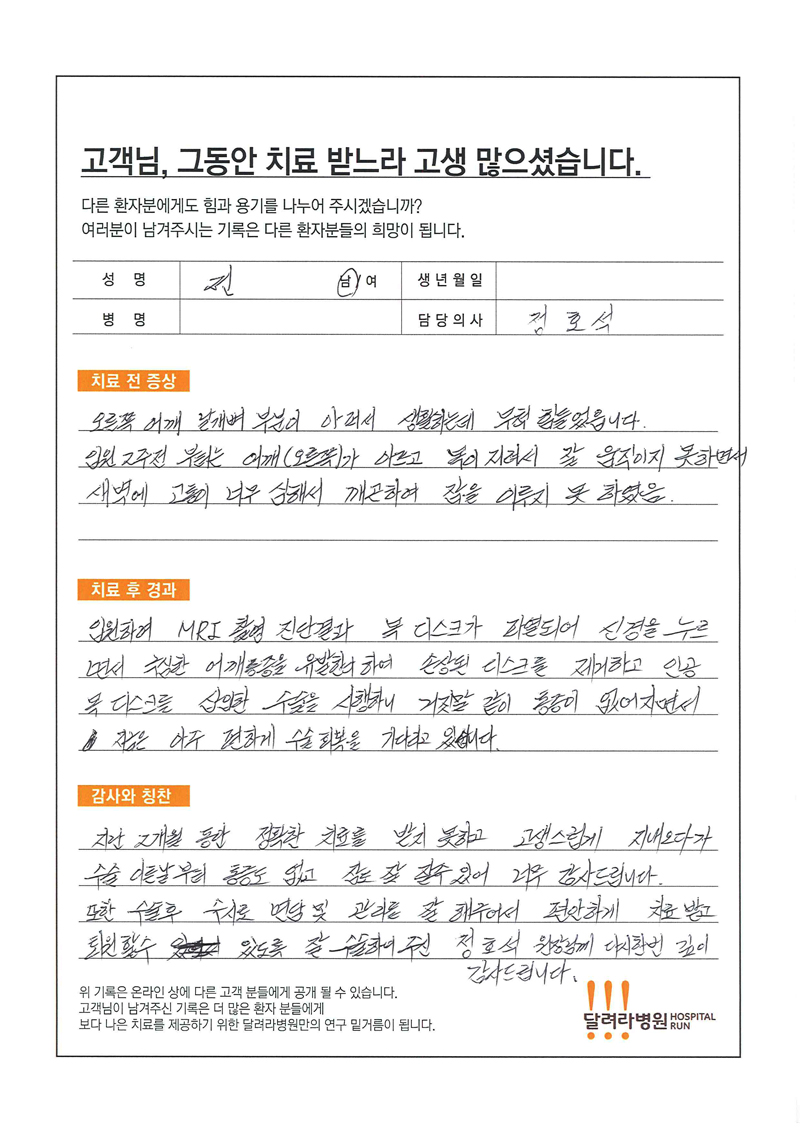 고객님, 그동안 치료 받느라 고생 많으셨습니다.
다른 환자분에게도 힘과 용기를 나누어 주시겠습니까?
여러분이 남겨주시는 기록은 다른 환자분들의 희망이 됩니다.
성 명 전 남/여 생년월일
병 명 담당의사 정호석
치료 전 증상
오른쪽 어깨 날개뼈 부분이 아퍼서 생활하는데 부척 힘들었읍니다.
입원 2주전 부터는 어깨(오른쪽)가 아프고 목이 저려서 잘 움직이지 못하면서
새벽에 고통이 너무 심해서 깨곤하여 잠을 이루지 못 하였음.
치료 후 경과
입원하여 MRI 촬영 진단결과 목 디스크가 파열되어 신경을 누르
면서 극심한 어깨통증을 유발한다 하여 손상된 디스크를 제거하고 인공
목 디스크를 삽입한 수술을 시행하니 거짓말 같이 통증이 없어지면서
지금은 아주 편하게 수술 회복을 기다리고 있습니다.
감사와 칭찬
지난 2개월 동안 정확한 치료를 받지 못하고 고생스럽게 지내오다가
수술 이튿날부터 통증도 없고 잠도 잘 잘수 있어 너무 감사드립니다.
또한 수술후 수시로 면담 및 관리를 잘 해주어서 편안하게 치료 받고
퇴원할수 있도록 잘 수술하여 주신 정호석 원장님께 다시한번 깊이
감사드립니다.
위 기록은 온라인 상에 다른 고객 분들에게 공개 될 수 있습니다.
고객님이 남겨주신 기록은 더 많은 환자 분들에게
보다 나은 치료를 제공하기 위한 달려라병원만의 연구 밑거름이 됩니다.
달려라병원 HOSPITAL RUN